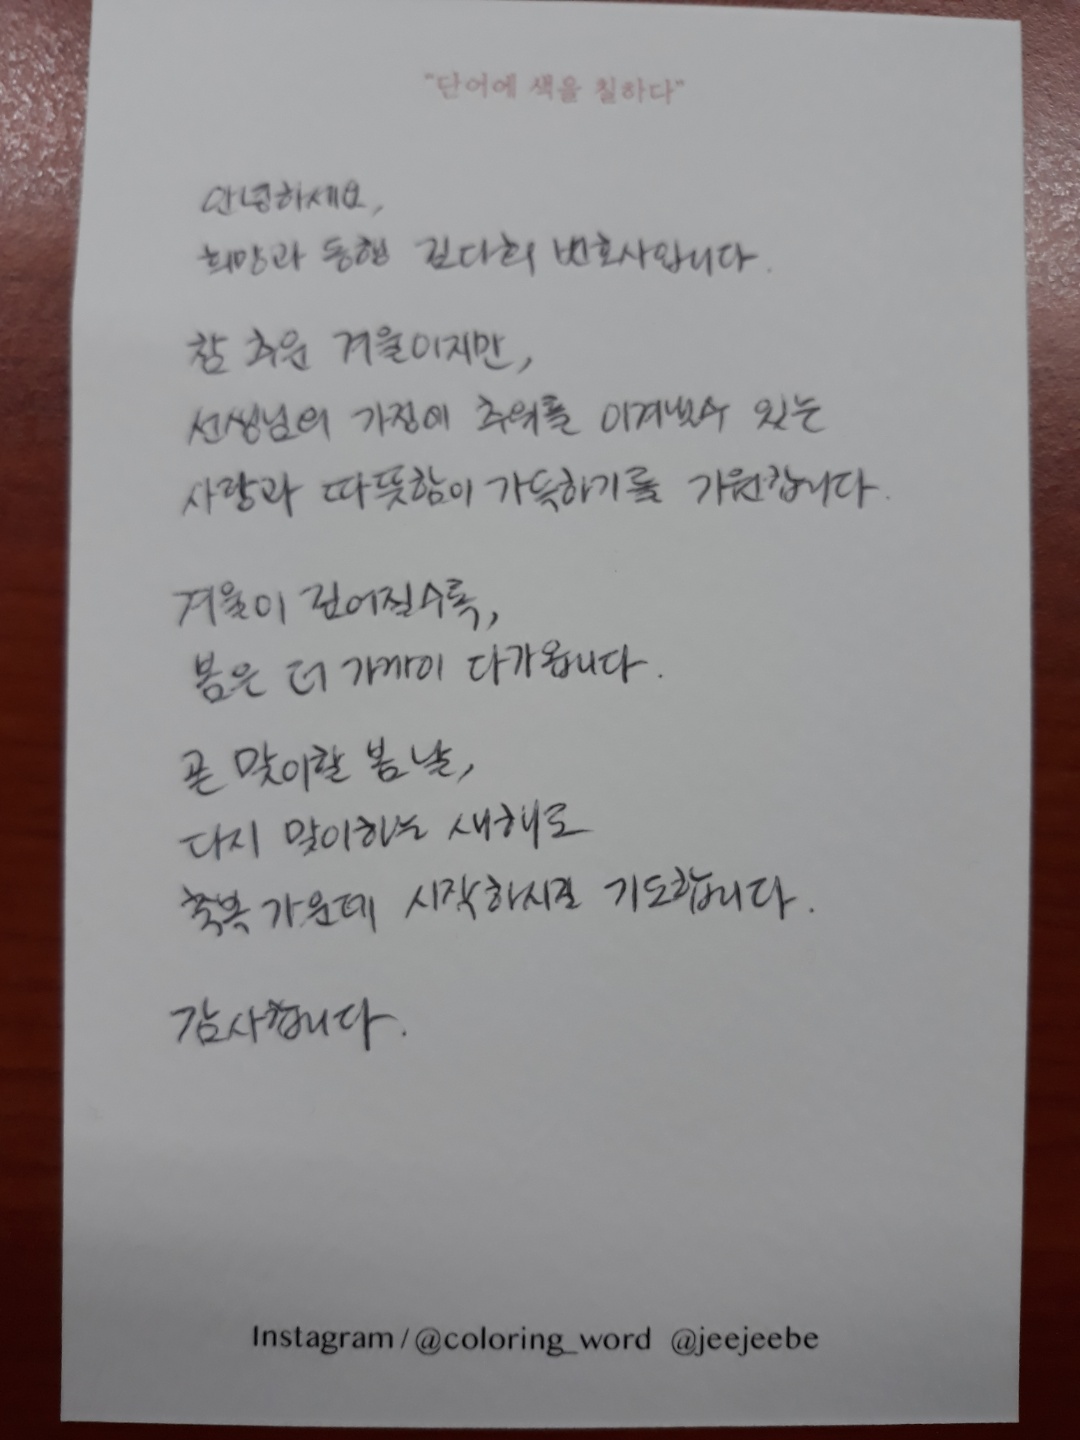 "단어에 색을 칠하다"
안녕하세요,
희망과 동행 김다희 변호사입니다.
참 추운 겨울이지만,
선생님의 가정에 추위를 이겨낼수 있는
사랑과 따뜻함이 가득하기를 기원합니다.
겨울이 깊어질수록,
봄은 더 가까이 다가옵니다.
곧 맞이할 봄날,
다시 맞이하는 새해로
축복 가운데 시작하시길 기도합니다.
감사합니다.
Instagram/@coloring_word @jeejeebe